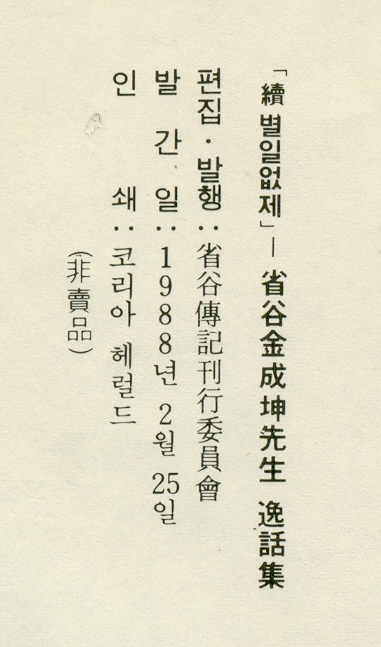 「續 별일없제」― 省谷金成坤先生 逸話集
편집·발행 : 省谷傳記刊行委員會
발간일 : 1988년 2월 25일
인쇄 : 코리아 헤럴드
(非賣品)